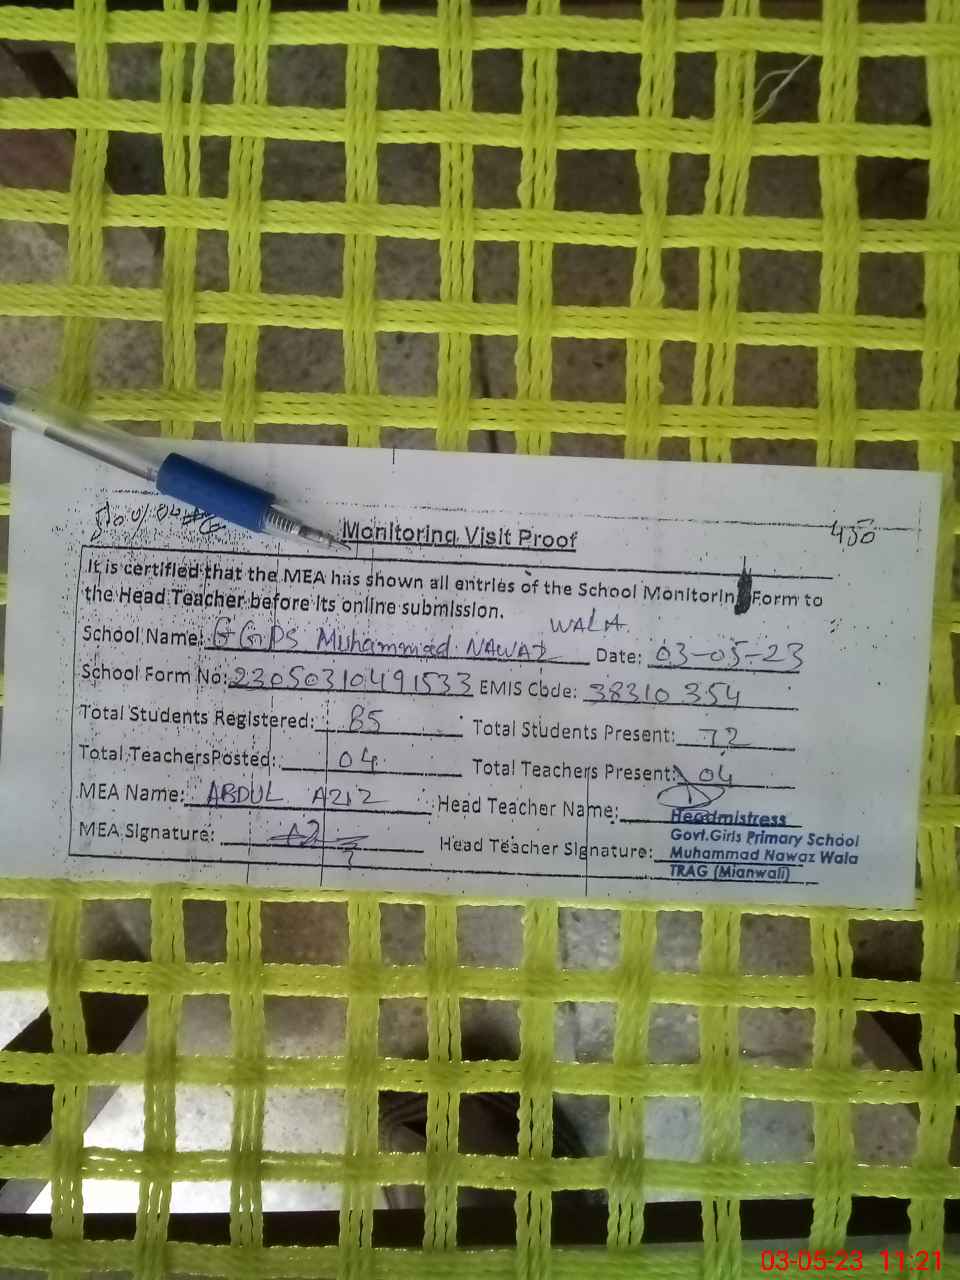 450
Monitoring Visit Proof
It is certified that the MEA has shown all entries of the School Monitorin Form to
the Head Teacher before its online submission.
School Name: GGPS Muhammad NAWAZ WALA Date: 03-05-23
School Form No: 23050310491533 EMIS Code: 38310354
Total Students Registered: 85 Total Students Present: 72
Total TeachersPosted: 04 Total Teachers Present: 04
MEA Name: ABDUL AZIZ Head Teacher Name:
MEA Signature: Head Teacher Signature:
Headmistress
Govt.Girls Primary School
Muhammad Nawaz Wala
TRAG (Mianwali)
03-05-23 11:21